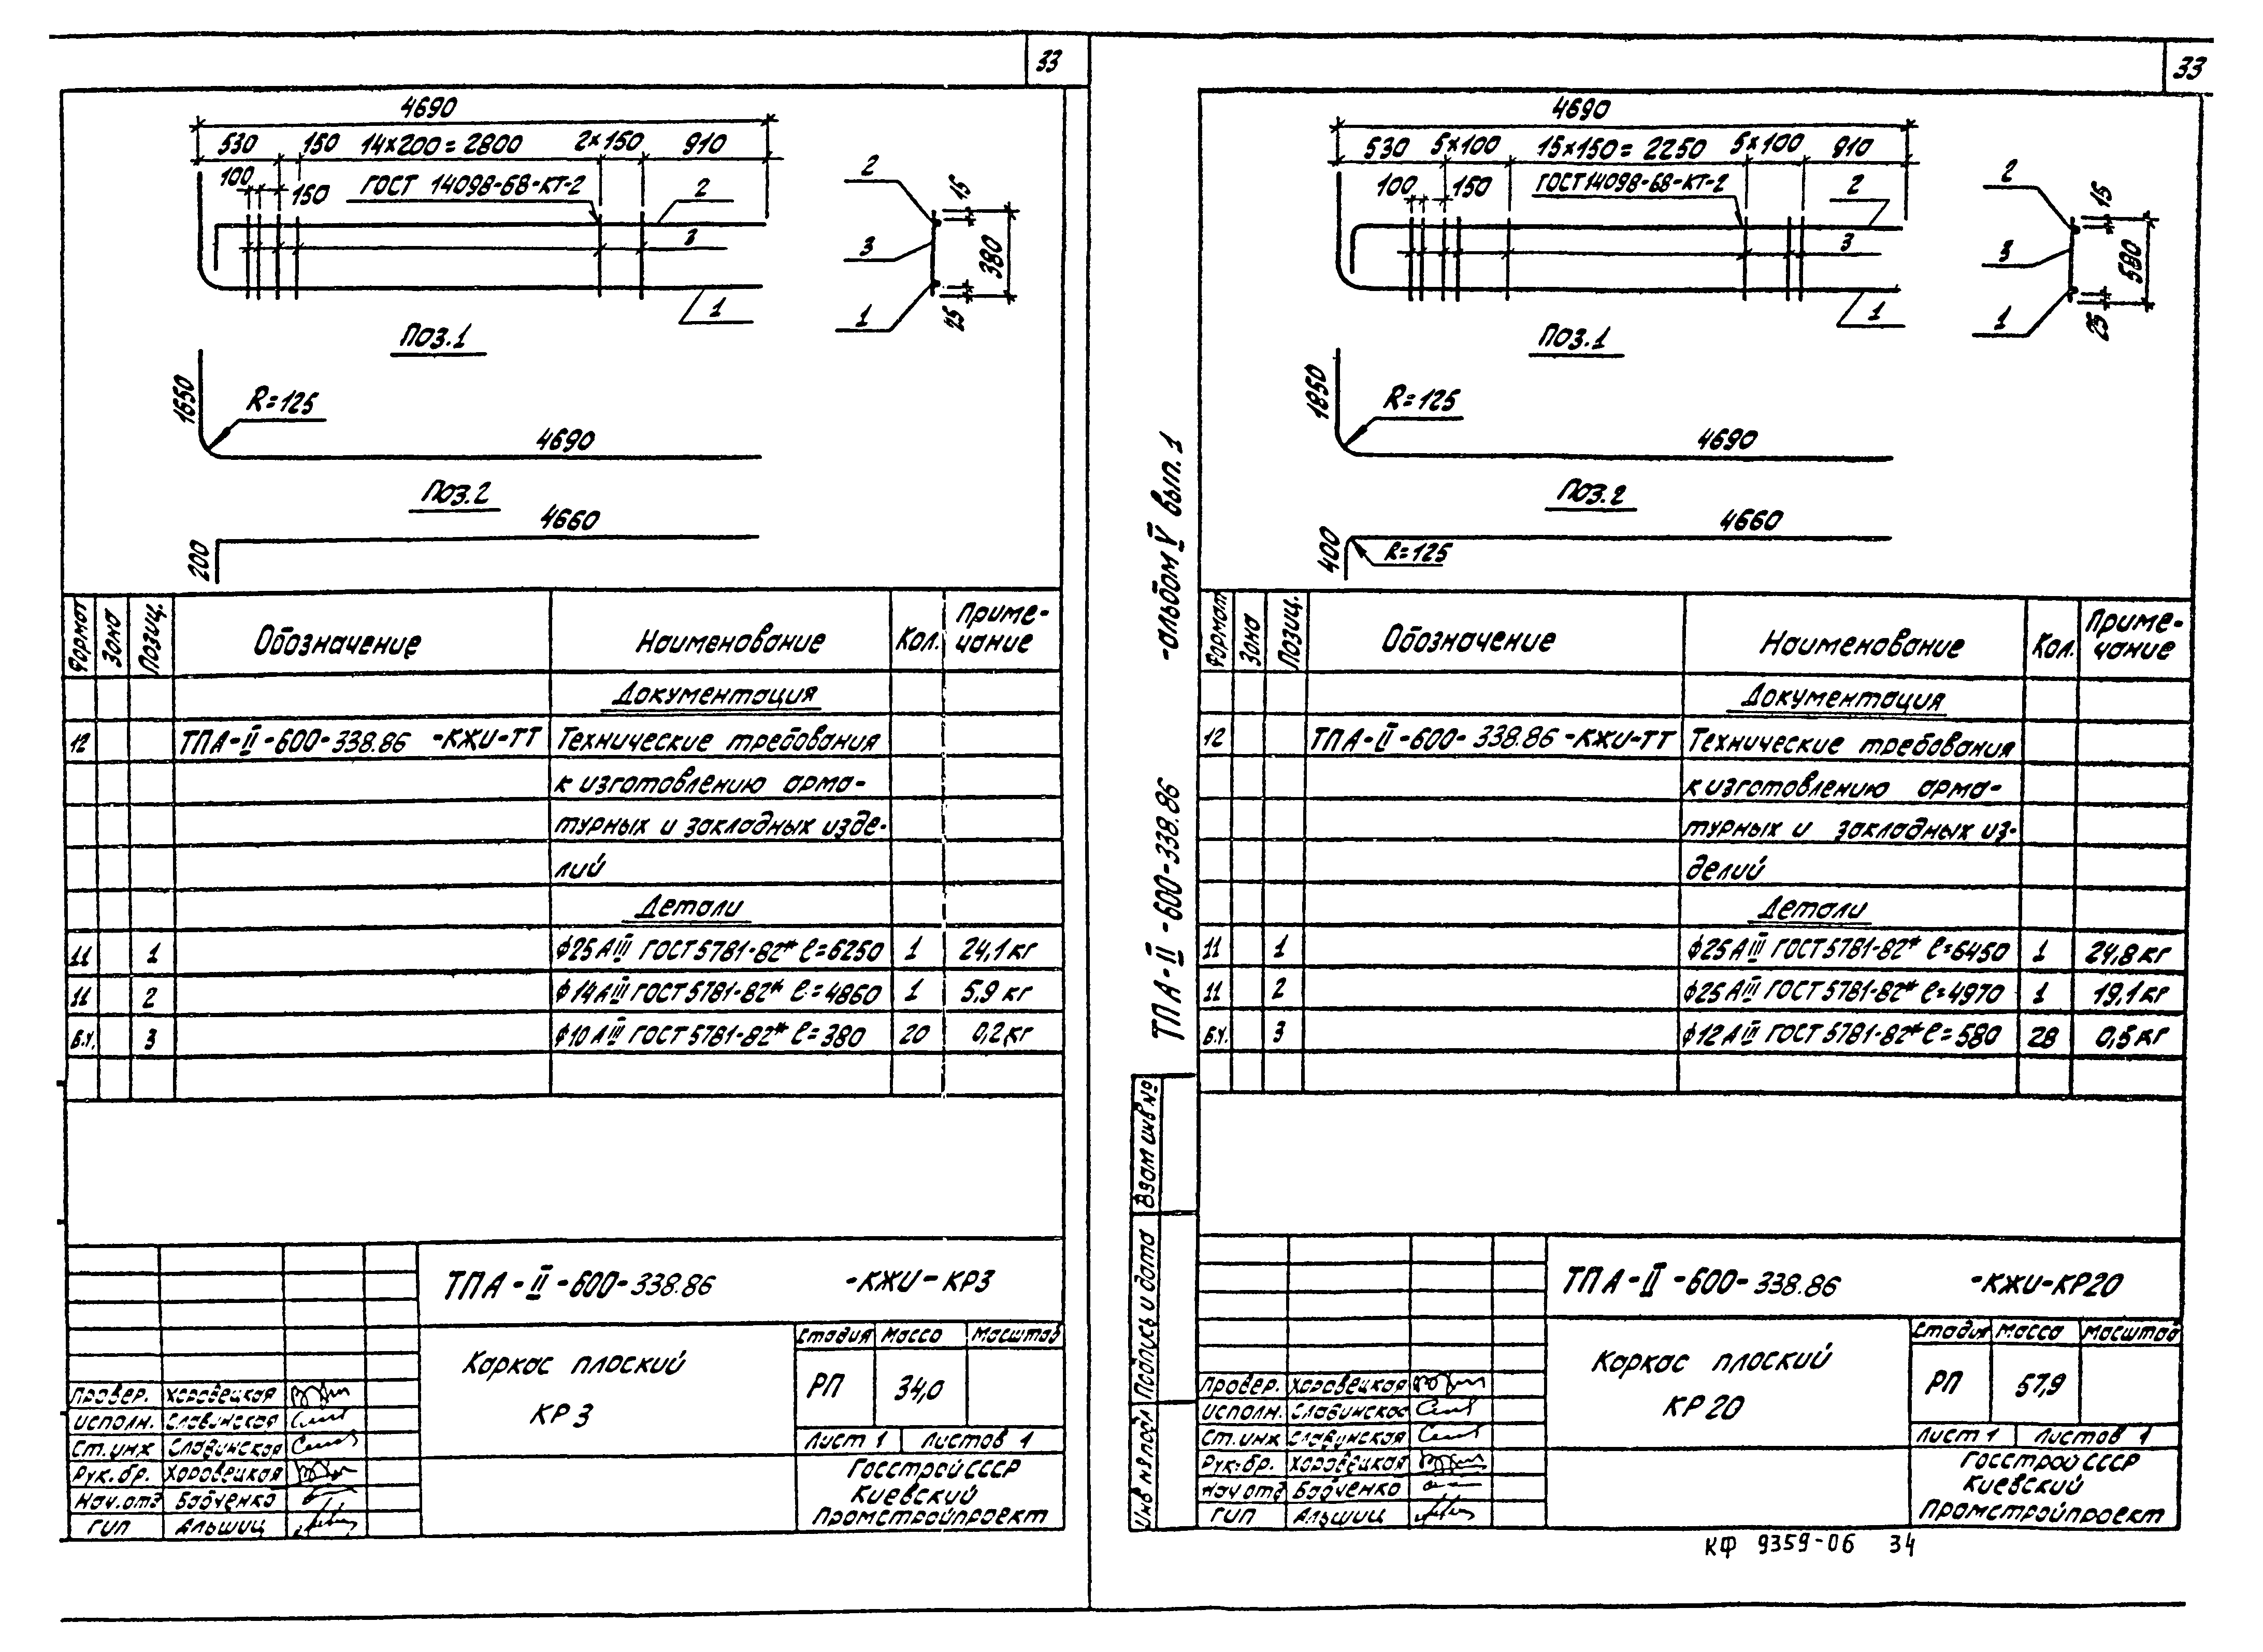 33
4690
530 150 14×200=2800 2×150 910
100 150 ГОСТ 14098-68-КТ-2 2
3
1
2
3
1
15
380
25
Поз.1
1650
R=125
4690
Поз.2
4660
200
Формат Зона Позиц. Обозначение Наименование Кол. Приме-
чание
Документация
12 ТПА-II-600-338.86 -КЖИ-ТТ Технические требования
к изготовлению арма-
турных и закладных изде-
лий
Детали
11 1 ϕ25АIII ГОСТ 5781-82* ℓ=6250 1 24,1кг
11 2 ϕ14АIII ГОСТ 5781-82* ℓ=4860 1 5,9 кг
Б.Ч. 3 ϕ10АIII ГОСТ 5781-82* ℓ=380 20 0,2кг
ТПА-II-600-338.86 -КЖИ-КР3
Каркас плоский
КР 3
Стадия Масса Масштаб
РП 34,0
Лист 1 Листов 1
Госстрой СССР
Киевский
Промстройпроект
Провер. Хоровецкая
Исполн. Славинская
Ст.инж Славинская
Рук.бр. Хоровецкая
Нач.отд Бабченко
ГИП Альшиц
33
4690
530 5×100 15×150=2250 5×100 910
100 150 ГОСТ 14098-68-КТ-2 2
3
1
2
3
1
15
580
25
Поз.1
1850
R=125
4690
Поз.2
4660
400
R=125
ТПА-II-600-338.86 -альбом V вып. 1
Формат Зона Позиц. Обозначение Наименование Кол. Приме-
чание
Документация
12 ТПА-II-600-338.86-КЖИ-ТТ Технические требования
к изготовлению арма-
турных и закладных из-
делий
Детали
11 1 ϕ25АIII ГОСТ 5781-82* ℓ=6450 1 24,8кг
11 2 ϕ25АIII ГОСТ 5781-82* ℓ=4970 1 19,1кг
Б.Ч. 3 ϕ12АIII ГОСТ 5781-82* ℓ=580 28 0,5кг
Взам инв №
Подпись и дата
Инв № подл
ТПА-II-600-338.86 -КЖИ-КР20
Каркас плоский
КР 20
Стадия Масса Масштаб
РП 57,9
Лист 1 Листов 1
Госстрой СССР
Киевский
Промстройпроект
Провер. Хоровецкая
Исполн. Славинская
Ст.инж Славинская
Рук.бр. Хоровецкая
Нач отд Бабченко
ГИП Альшиц
КФ 9359-06 34